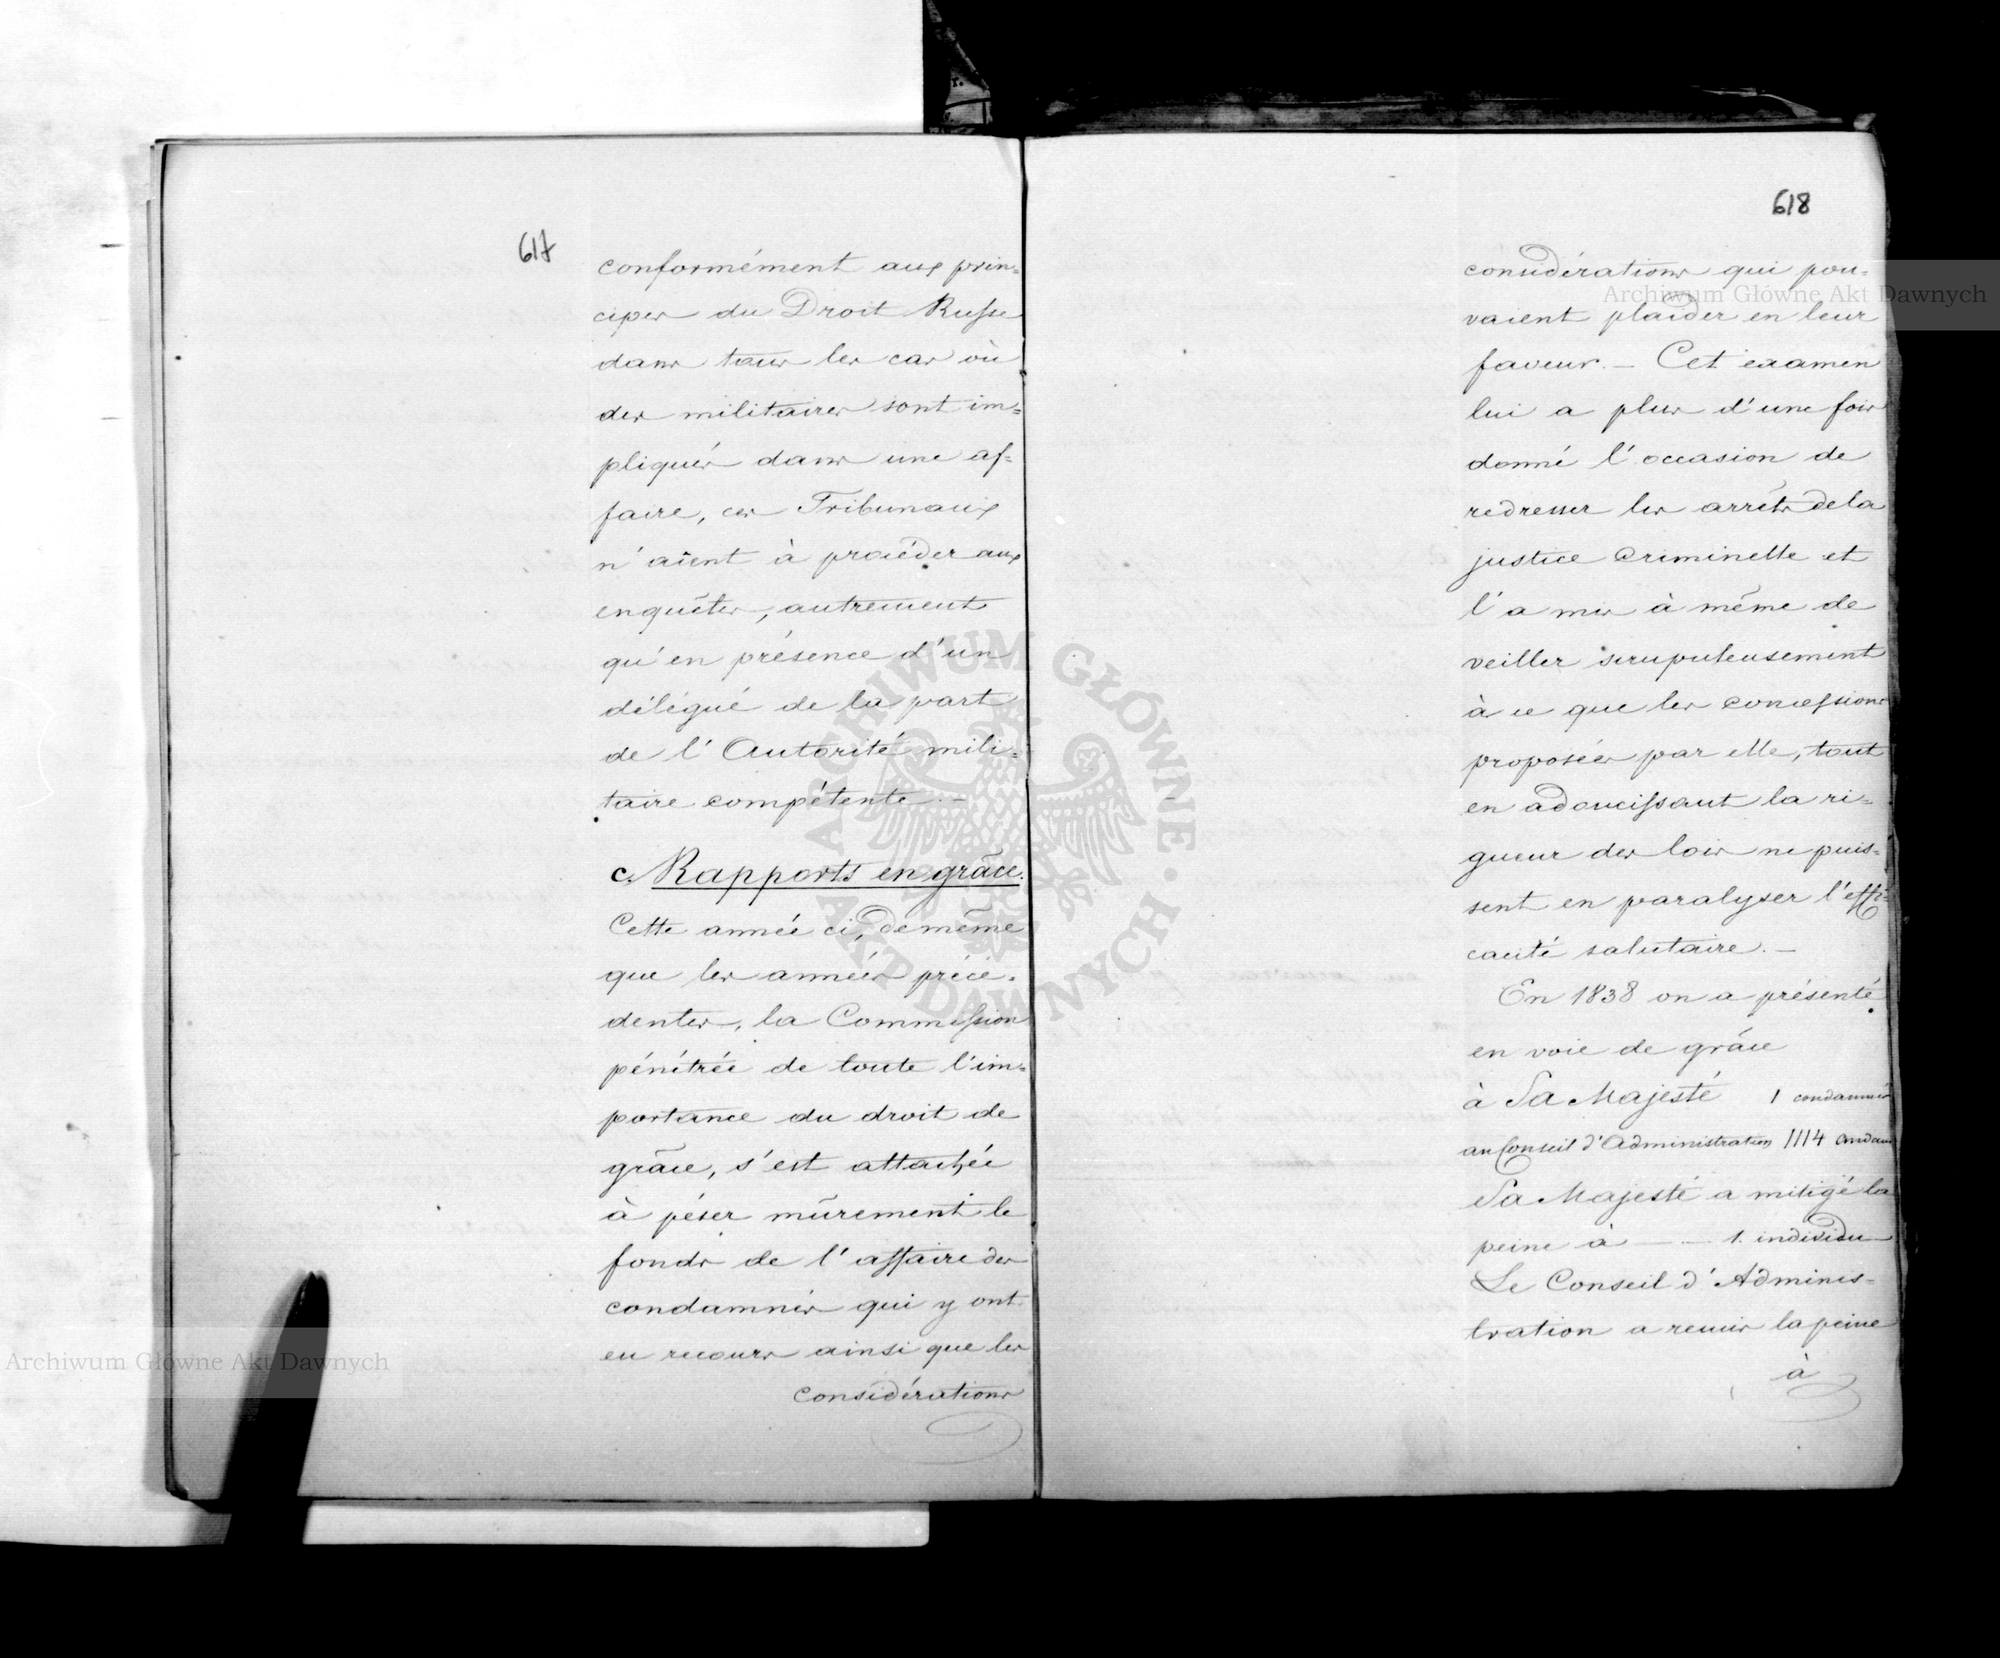 617
conformément aux prin=
cipes du Droit Russe
dans tous les cas où
des militaires sont im=
pliqués dans une af=
faire, ces Tribunaux
n'aient à procéder aux
enquêtes, autrement
qu'en présence d'un
délégué de la part
de l'Autorité mili=
taire compétente.—
c. Rapports en grâce.
Cette année ci, de même
que les années précé=
dentes, la Commission
pénétrée de toute l'im=
portance du droit de
grâce, s'est attachée
à péser mûrement le
fonds de l'affaire des
condamnés qui y ont
eu recours ainsi que les
considérations
618
considérations qui pou=
vaient plaider en leur
faveur.— Cet examen
lui a plus d'une fois
donné l'occasion de
redresser les arrêts de la
justice criminelle et
l'a mis à même de
veiller scrupuleusement
à ce que les concessions
proposées par elle, tout
en adoucissant la ri=
gueur des lois ne puis=
sent en paralyser l'effi=
cacité salutaire.—
En 1838 on a présenté
en voie de grâce
à Sa Majesté 1 condamné
au Conseil d'Administration 1114 condam
Sa Majesté a mitigé la
peine à — — 1 individu
Le Conseil d'Adminis=
tration a remis la peine
à
Archiwum Główne Akt Dawnych
Archiwum Główne Akt Dawnych
ARCHIWUM GŁÓWNE AKT DAWNYCH